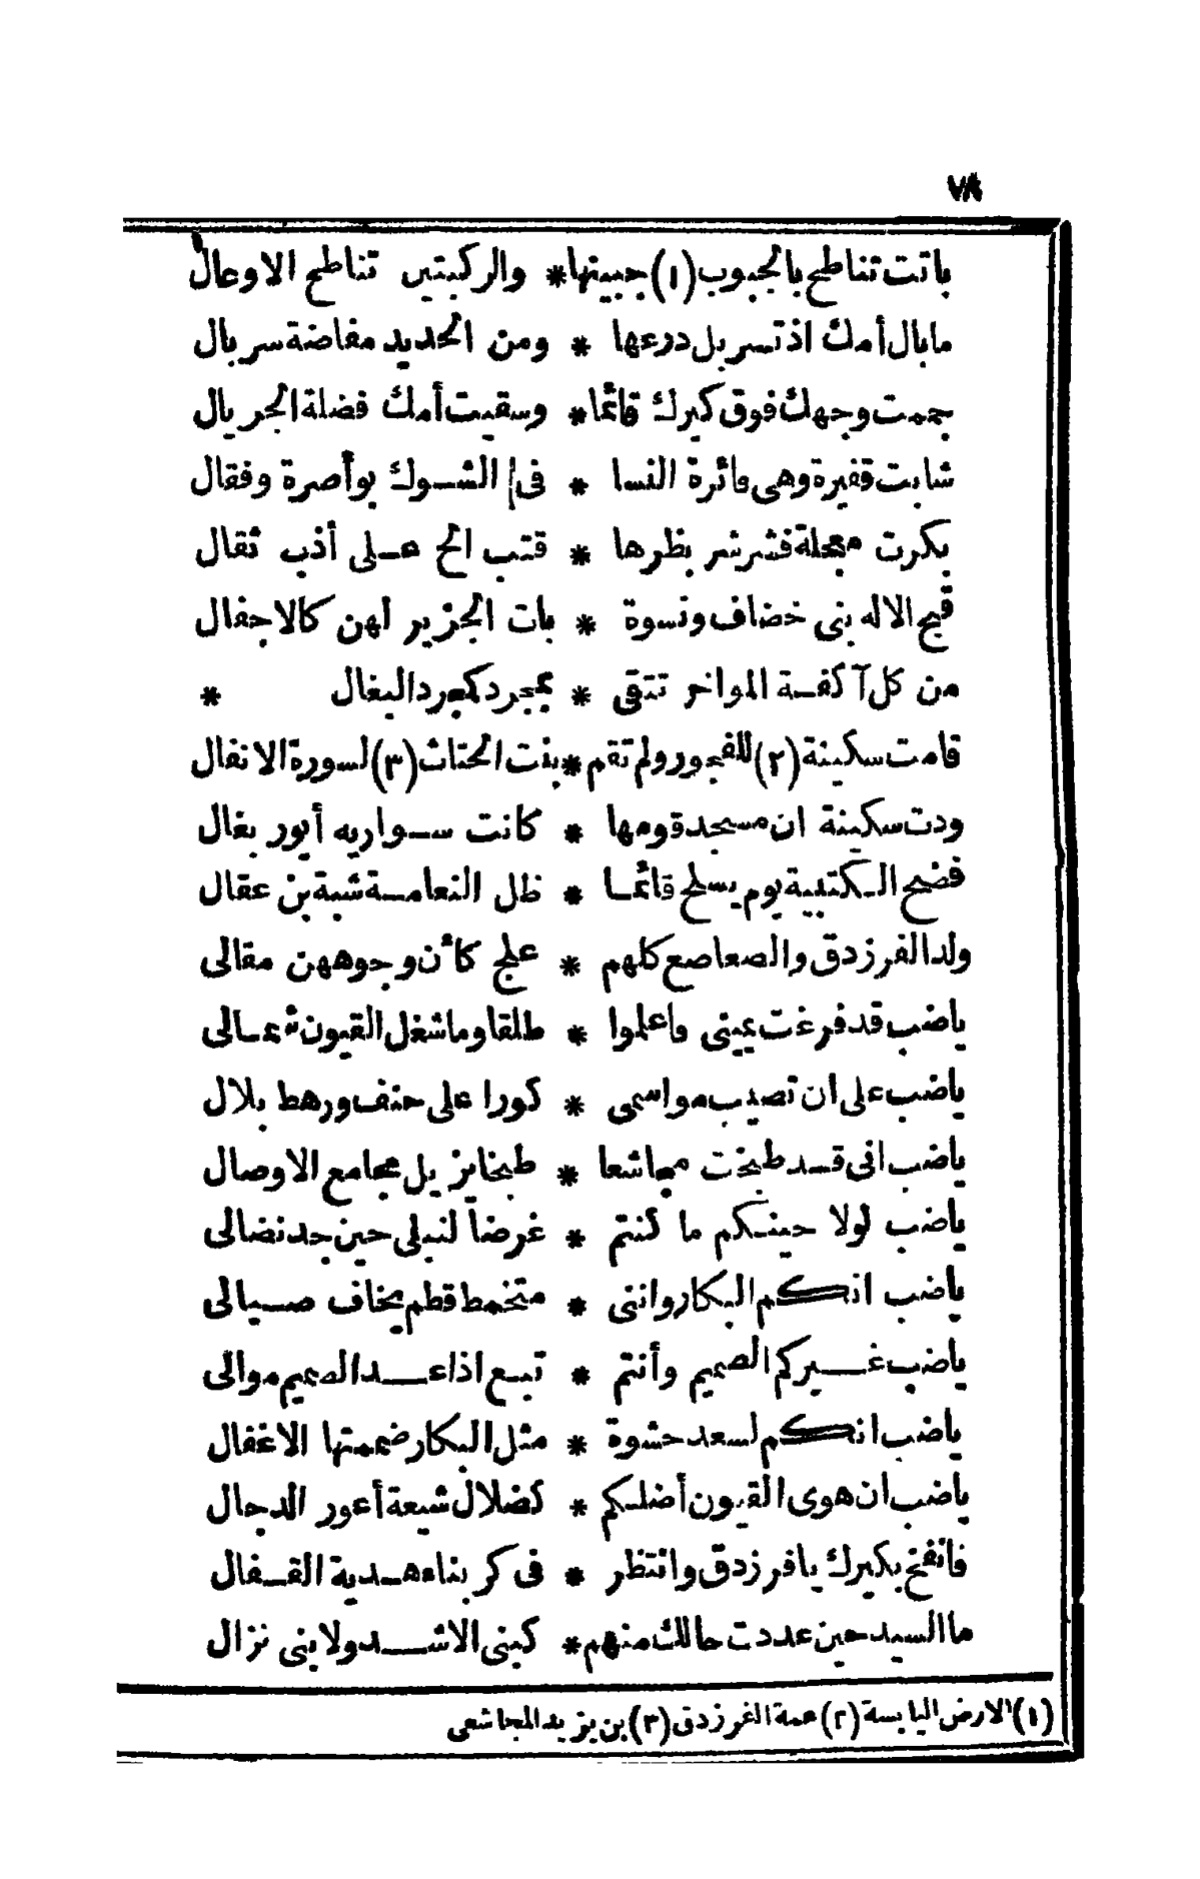 باتت تناطح بالجبوب (١) جبينها * والركبتين تناطح الاوعال
مابال أمك اذ تسربل درعها * ومن الحديد مفاضة سربال
حممت وجهك فوق كيرك قائما * وسقيت أمك فضلة الجريال
شابت قفيرة وهى فائرة النسا * فى الشوك بوأصرة وفقال
بكرت معجلة فشرشر بظرها * قتب الح على أذب ثقال
قبح الاله بنى خضاف ونسوة * بات الجزير لهن كالاجفال
من كل آكفة المواخر تتقى * بمجرد كمجرد البغال *
قامت سكينة (٢) للفجور ولم تقم * بنت الحتات (٣) لسورة الانفال
ودت سكينة ان مسجد قومها * كانت سواريه أيور بغال
فضح الكتيبة يوم يسلح قائما * ظل النعامة شبة بن عقال
ولد الفرزدق والصعاصع كلهم * علج كأن وجوههن مقالى
ياضب قد فرغت يمينى فاعلموا * طلقا وما شغل القيون شمالى
ياضب على ان تصيب مواسمى * كورا على حنف ورهط بلال
ياضب انى قد طبخت مجاشعا * طبخا يزيل مجامع الاوصال
ياضب لولا حينكم ما كنتم * غرضا لنبلى حين جد نضالى
ياضب انكم البكار واننى * متخمط قطم يخاف صيالى
ياضب غيركم الصميم وأنتم * تبع اذا عد الصميم موالى
ياضب انكم لسعد حشوة * مثل البكار ضممتها الاغفال
ياضب ان هوى القيون أضلكم * كضلال شيعة أعور الدجال
فانفخ بكيرك يافرزدق وانتظر * فى كربناء هدية القفال
ما السيد حين عددت حالك منهم * كبنى الاشد ولا بنى نزال
(١) الارض اليابسة (٢) عمة الفرزدق (٣) بن يزيد المجاشعى